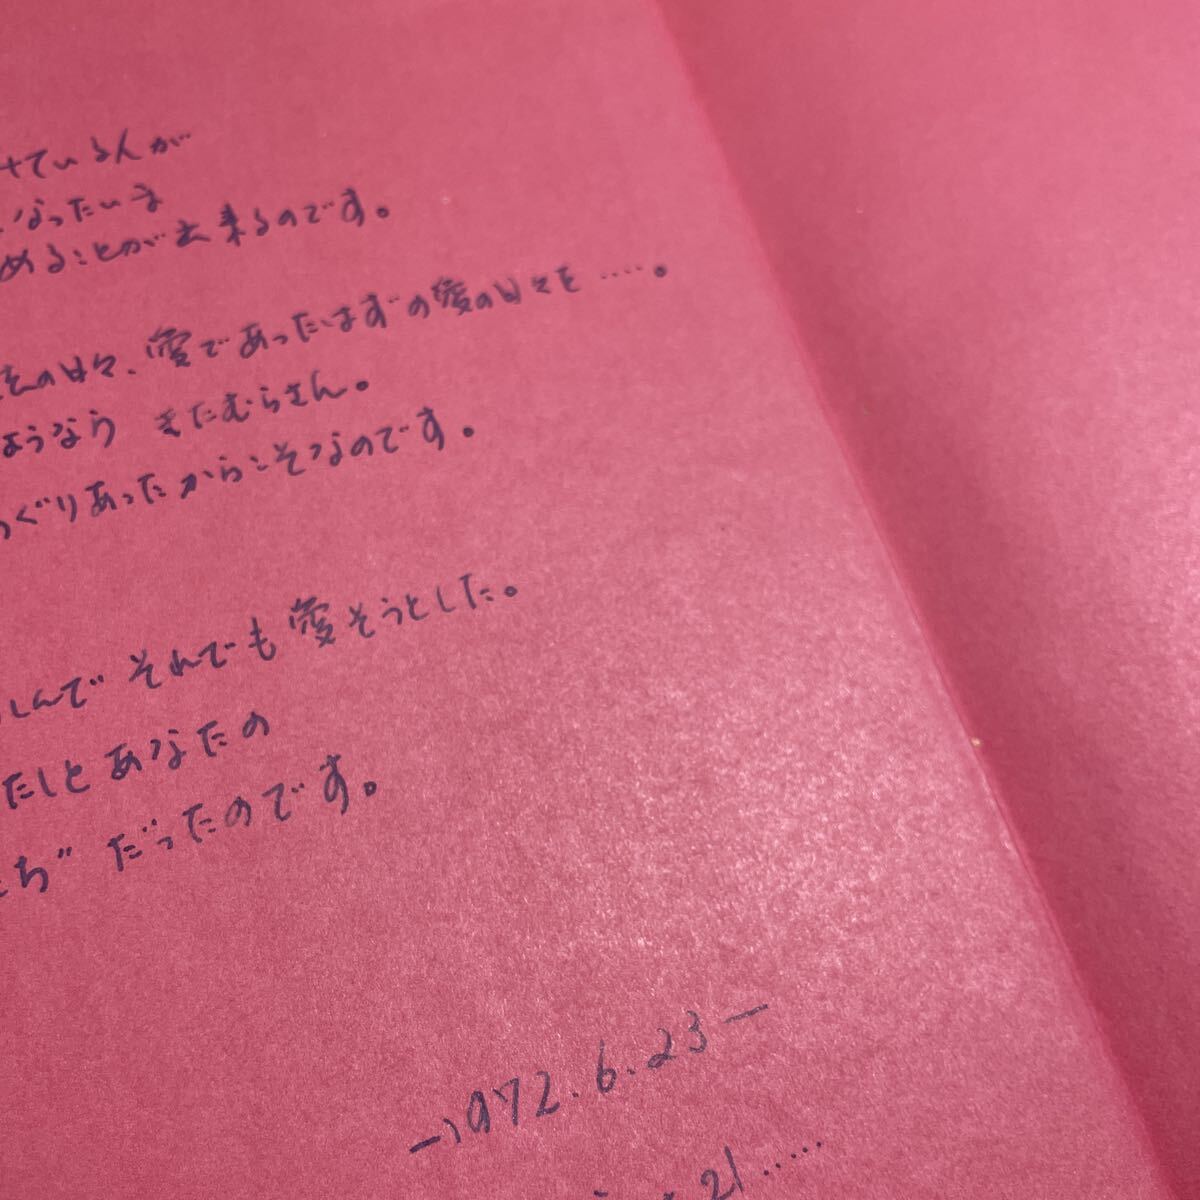 けているんが
なったいま
めることが出来るのです。
の日々、愛であったはずの愛の日々を……。
ようなら きたむらさん。
ぐりあったからこそなのです。
しんで それでも 愛そうとした。
たしと あなたの
たち” だったのです。
—1972.6.23—
21.....